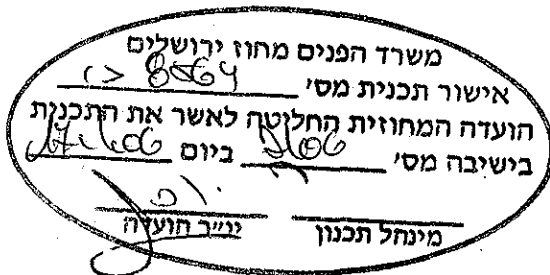 משרד הפנים מחוז ירושלים
אישור תכנית מס׳ 8564
הועדה המחוזית החליטה לאשר את התכנית
בישיבה מס׳ ביום
מינהל תכנון יו״ר הועדה